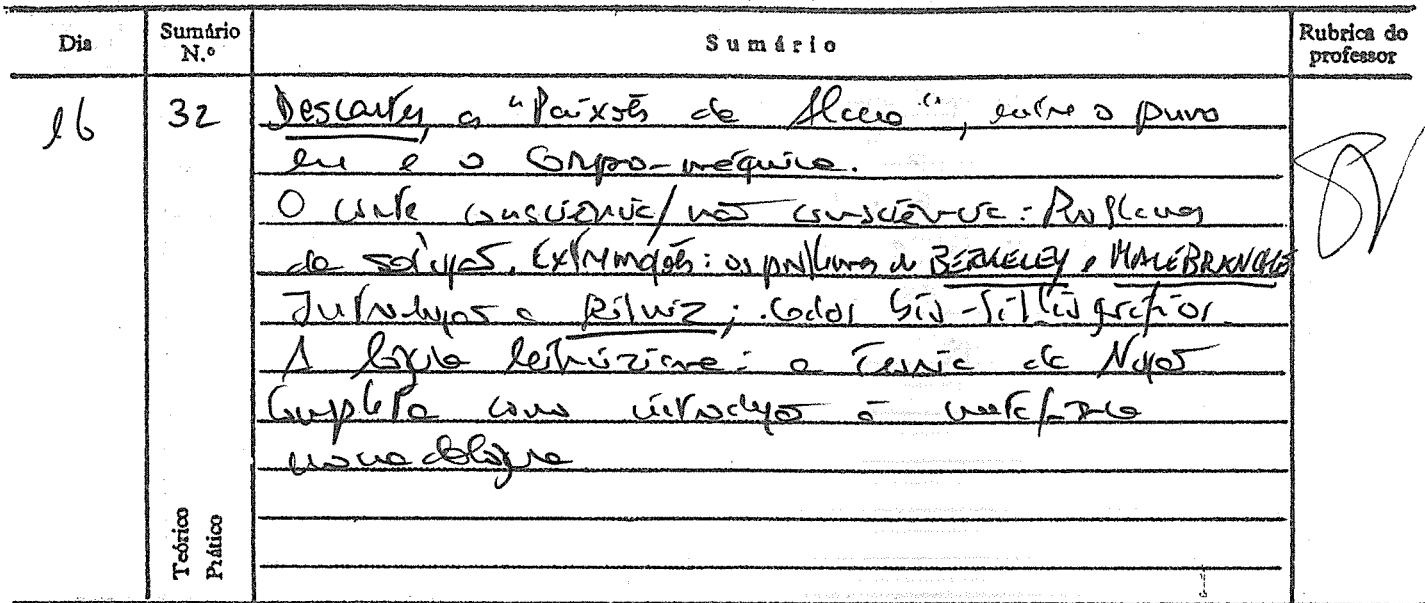 Dia
Sumário N.º
Sumário
Rubrica do professor
16
32
Descartes, as "Paixões da Alma", entre o puro
eu e o corpo-máquina.
O corte consciência/não consciência: Problemas
de solução. Extremações: os problemas de BERKELEY e MALEBRANCHE
Introdução a Leibniz; dados bio-bibliográficos
A lógica leibniziana: a Teoria da Noção
Completa como introdução à metafísica
monadológica
Teórico
Prático